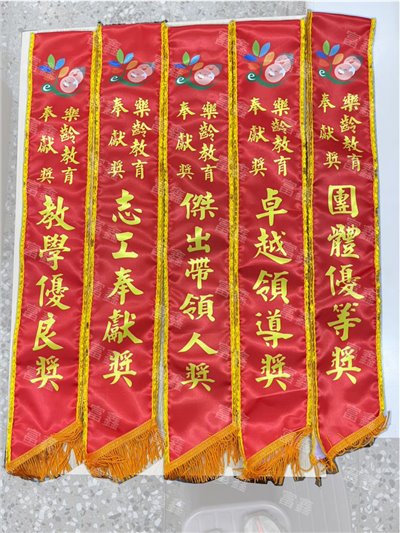 e
樂齡教育
奉獻獎
團體優等獎
e
樂齡教育
奉獻獎
卓越領導獎
e
樂齡教育
奉獻獎
傑出帶領人獎
e
樂齡教育
奉獻獎
志工奉獻獎
e
樂齡教育
奉獻獎
教學優良獎